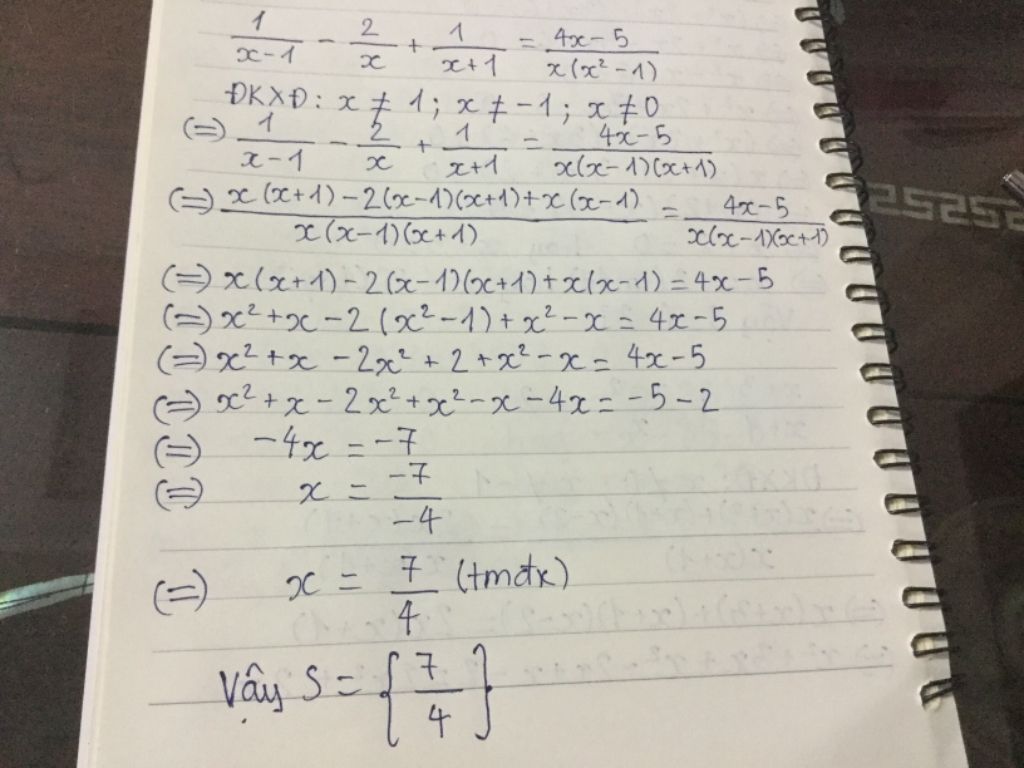 1/(x-1) - 2/x + 1/(x+1) = (4x-5)/(x(x²-1))
ĐKXĐ: x ≠ 1; x ≠ -1; x ≠ 0
(=) 1/(x-1) - 2/x + 1/(x+1) = (4x-5)/(x(x-1)(x+1))
(=) (x(x+1)-2(x-1)(x+1)+x(x-1))/(x(x-1)(x+1)) = (4x-5)/(x(x-1)(x+1))
(=) x(x+1)-2(x-1)(x+1)+x(x-1) = 4x-5
(=) x²+x-2(x²-1)+x²-x = 4x-5
(=) x²+x-2x²+2+x²-x = 4x-5
(=) x²+x-2x²+x²-x-4x = -5-2
(=) -4x = -7
(=) x = -7/-4
(=) x = 7/4 (tmđk)
Vậy S = {7/4}